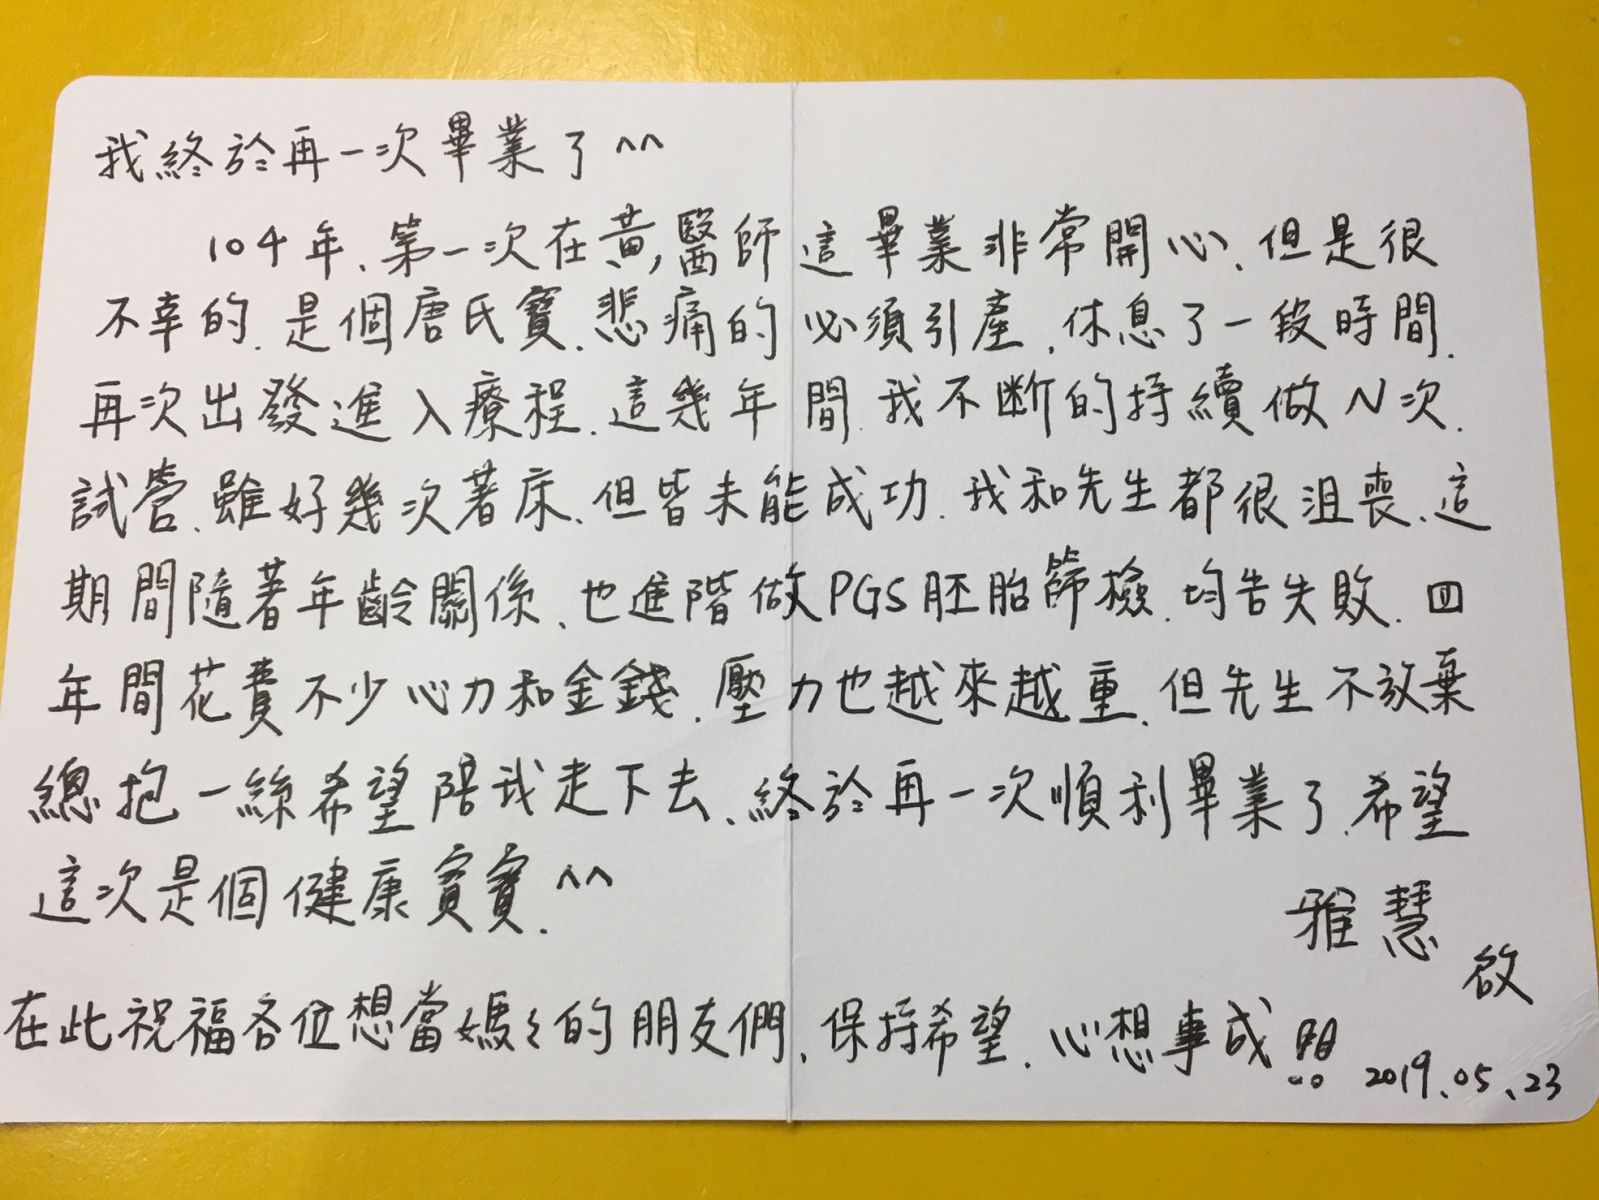 我終於再一次畢業了^^
104年、第一次在黃醫師這畢業非常開心、但是很
不幸的、是個唐氏寶、悲痛的必須引產、休息了一段時間、
再次出發進入療程、這幾年間、我不斷的持續做N次、
試管、雖好幾次著床、但皆未能成功、我和先生都很沮喪、這
期間隨著年齡關係、也進階做PGS胚胎篩檢、均告失敗、四
年間花費不少心力和金錢、壓力也越來越重、但先生不放棄
總抱一絲希望陪我走下去、終於再一次順利畢業了、希望
這次是個健康寶寶.^^
雅慧
啟
在此祝福各位想當媽々的朋友們、保持希望、心想事成!!
2019.05.23